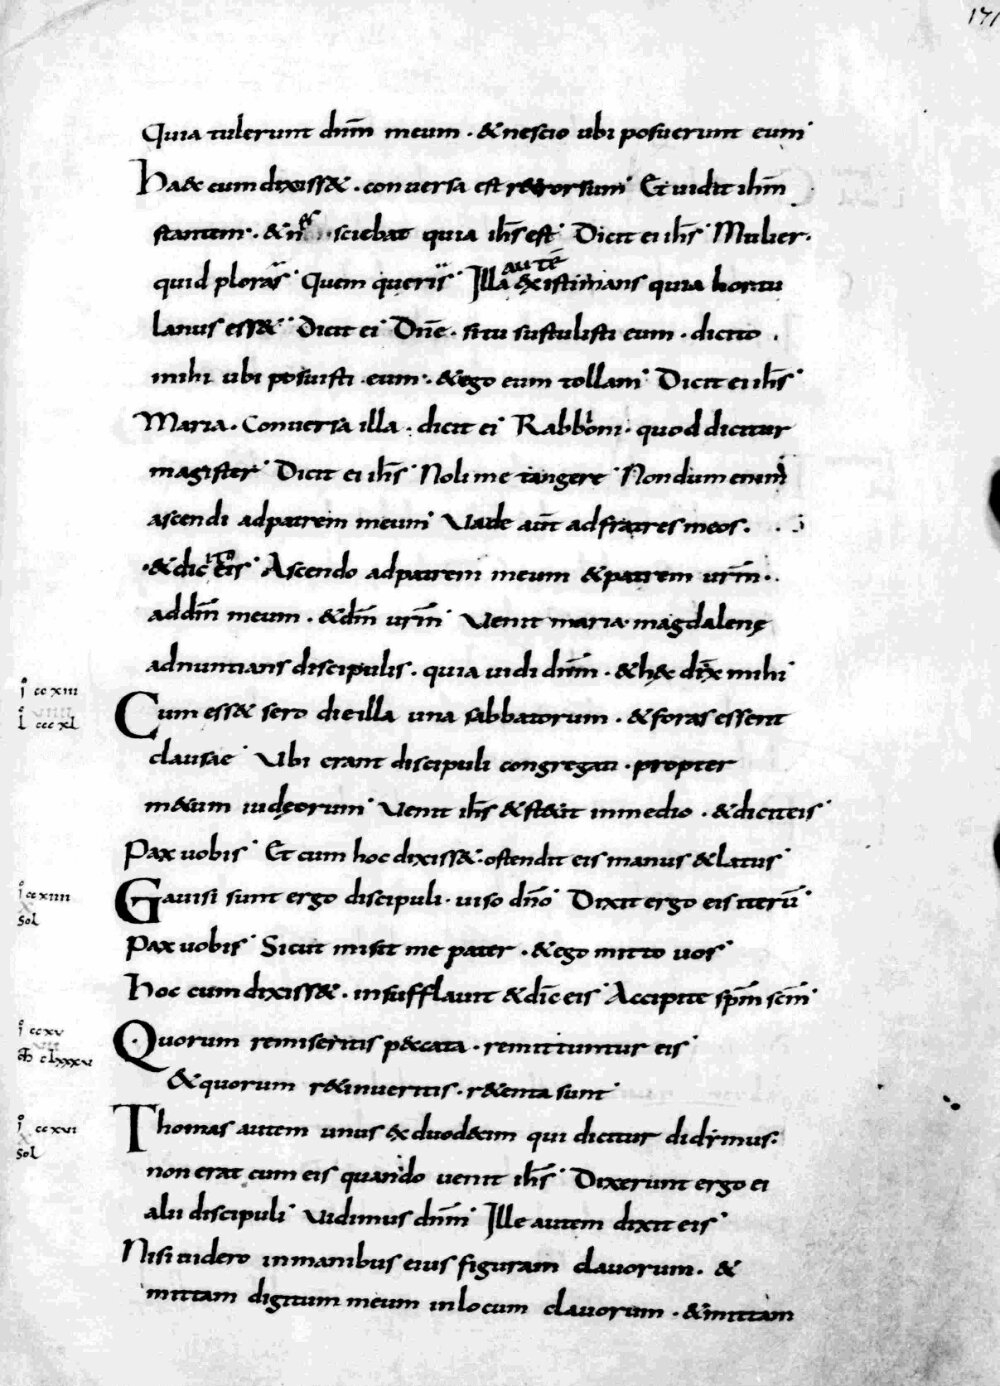 171
Quia tulerunt dnm̄ meum · & nescio ubi posuerunt eum
Haec cum dixiss& · conversa est r&rorsum Et uidit ihm̄
stantem · & nesciebat quia ihs̄ est Dicit ei ihs̄ Mulier ·
quid ploras Quem queris Illa autē existimans quia hortu
lanus ess& Dicit ei Dnē · si tu sustulisti eum · dicito
mihi ubi posuisti eum · & ego eum tollam Dicit ei ihs̄
Maria · Conversa illa · dicit ei Rabboni · quod dicitur
magister Dicit ei ihs̄ Noli me tangere Nondum enim
ascendi ad patrem meum Vade aūt ad fratres meos ·
& dicito eis Ascendo ad patrem meum & patrem urm̄ ·
ad dm̄ meum · & dm̄ urm̄ Venit maria magdalenę
adnuntians discipulis · quia uidi dnm̄ · & hęc dix̄ mihi
ı̊ cc xiii
Cum ess& sero die illa una sabbatorum · & foras essent
l̊ ccc xl
clausae Ubi erant discipuli congregati · propter
m&um iudęorum Venit ihs̄ & st&it in medio · & dicit eis
Pax uobis Et cum hoc dixiss& · ostendit eis manus & latus
ı̊ cc xiiii
Gauisi sunt ergo discipuli · uiso dnō Dixit ergo eis iterū
sol
Pax uobis Sicut misit me pater · & ego mitto uos
Hoc cum dixiss& · insufflauit & dic̄ eis Accipite spm̄ scm̄
ı̊ cc xv
Quorum remiseritis p&ccata · remittuntur eis
clxxxvi
& quorum r&inueritis · r&enta sunt
ı̊ cc xvi
Thomas autem unus ex duodecim qui dicitur didymus
sol
non erat cum eis quando uenit ihs̄ Dixerunt ergo ei
alii discipuli Vidimus dnm̄ Ille autem dixit eis
Nisi uidero in manibus eius figuram clauorum · &
mittam digitum meum in locum clauorum · & mittam